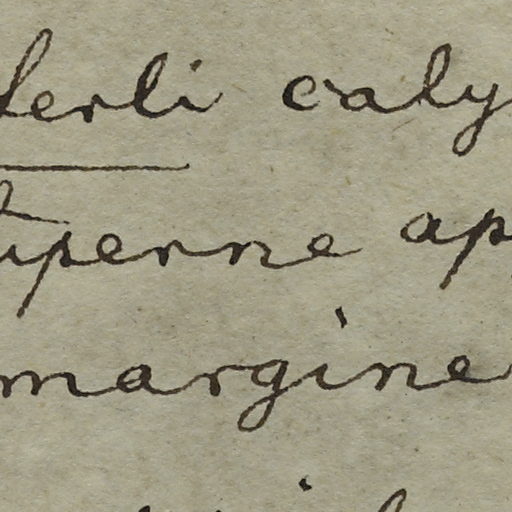 lerli caly
tiperne ap
margine